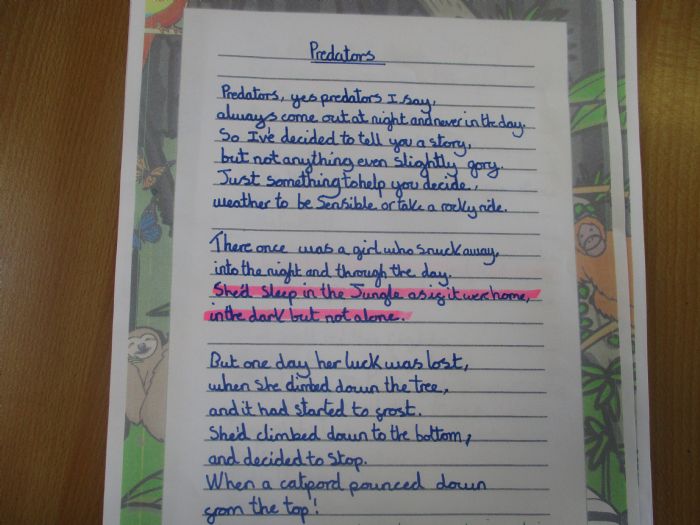 Predators
Predators, yes predators I say,
always come out at night and never in the day.
So I've decided to tell you a story,
but not anything even slightly gory.
Just something to help you decide,
weather to be sensible or take a rocky ride.
There once was a girl who snuck away,
into the night and through the day.
She'd sleep in the Jungle as if it were home,
in the dark but not alone.
But one day her luck was lost,
when she climbed down the tree,
and it had started to frost.
She'd climbed down to the bottom,
and decided to stop.
When a catpord pounced down
from the top!